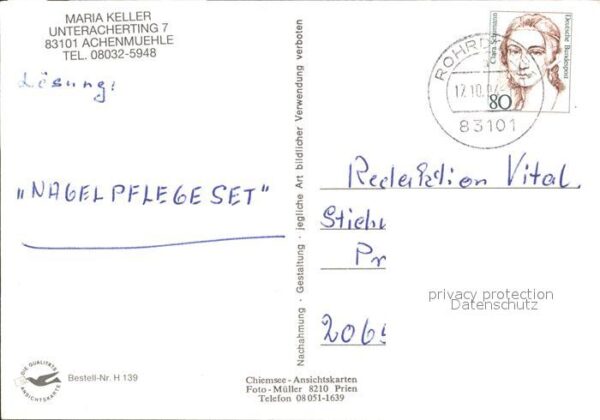 MARIA KELLER
UNTERACHERTING 7
83101 ACHENMUEHLE
TEL. 08032-5948
Lösung:
"NAGELPFLEGESET"
DIE QUALITÄTS
ANSICHTSKARTE
Bestell-Nr. H 139
Nachahmung · Gestaltung · jegliche Art bildlicher Verwendung verboten
Chiemsee-Ansichtskarten
Foto-Müller 8210 Prien
Telefon 08051-1639
Clara Schumann
Deutsche Bundespost
80
17.10.94
83101
Redaktion Vital
Stichw
Pr
2065
privacy protection
Datenschutz